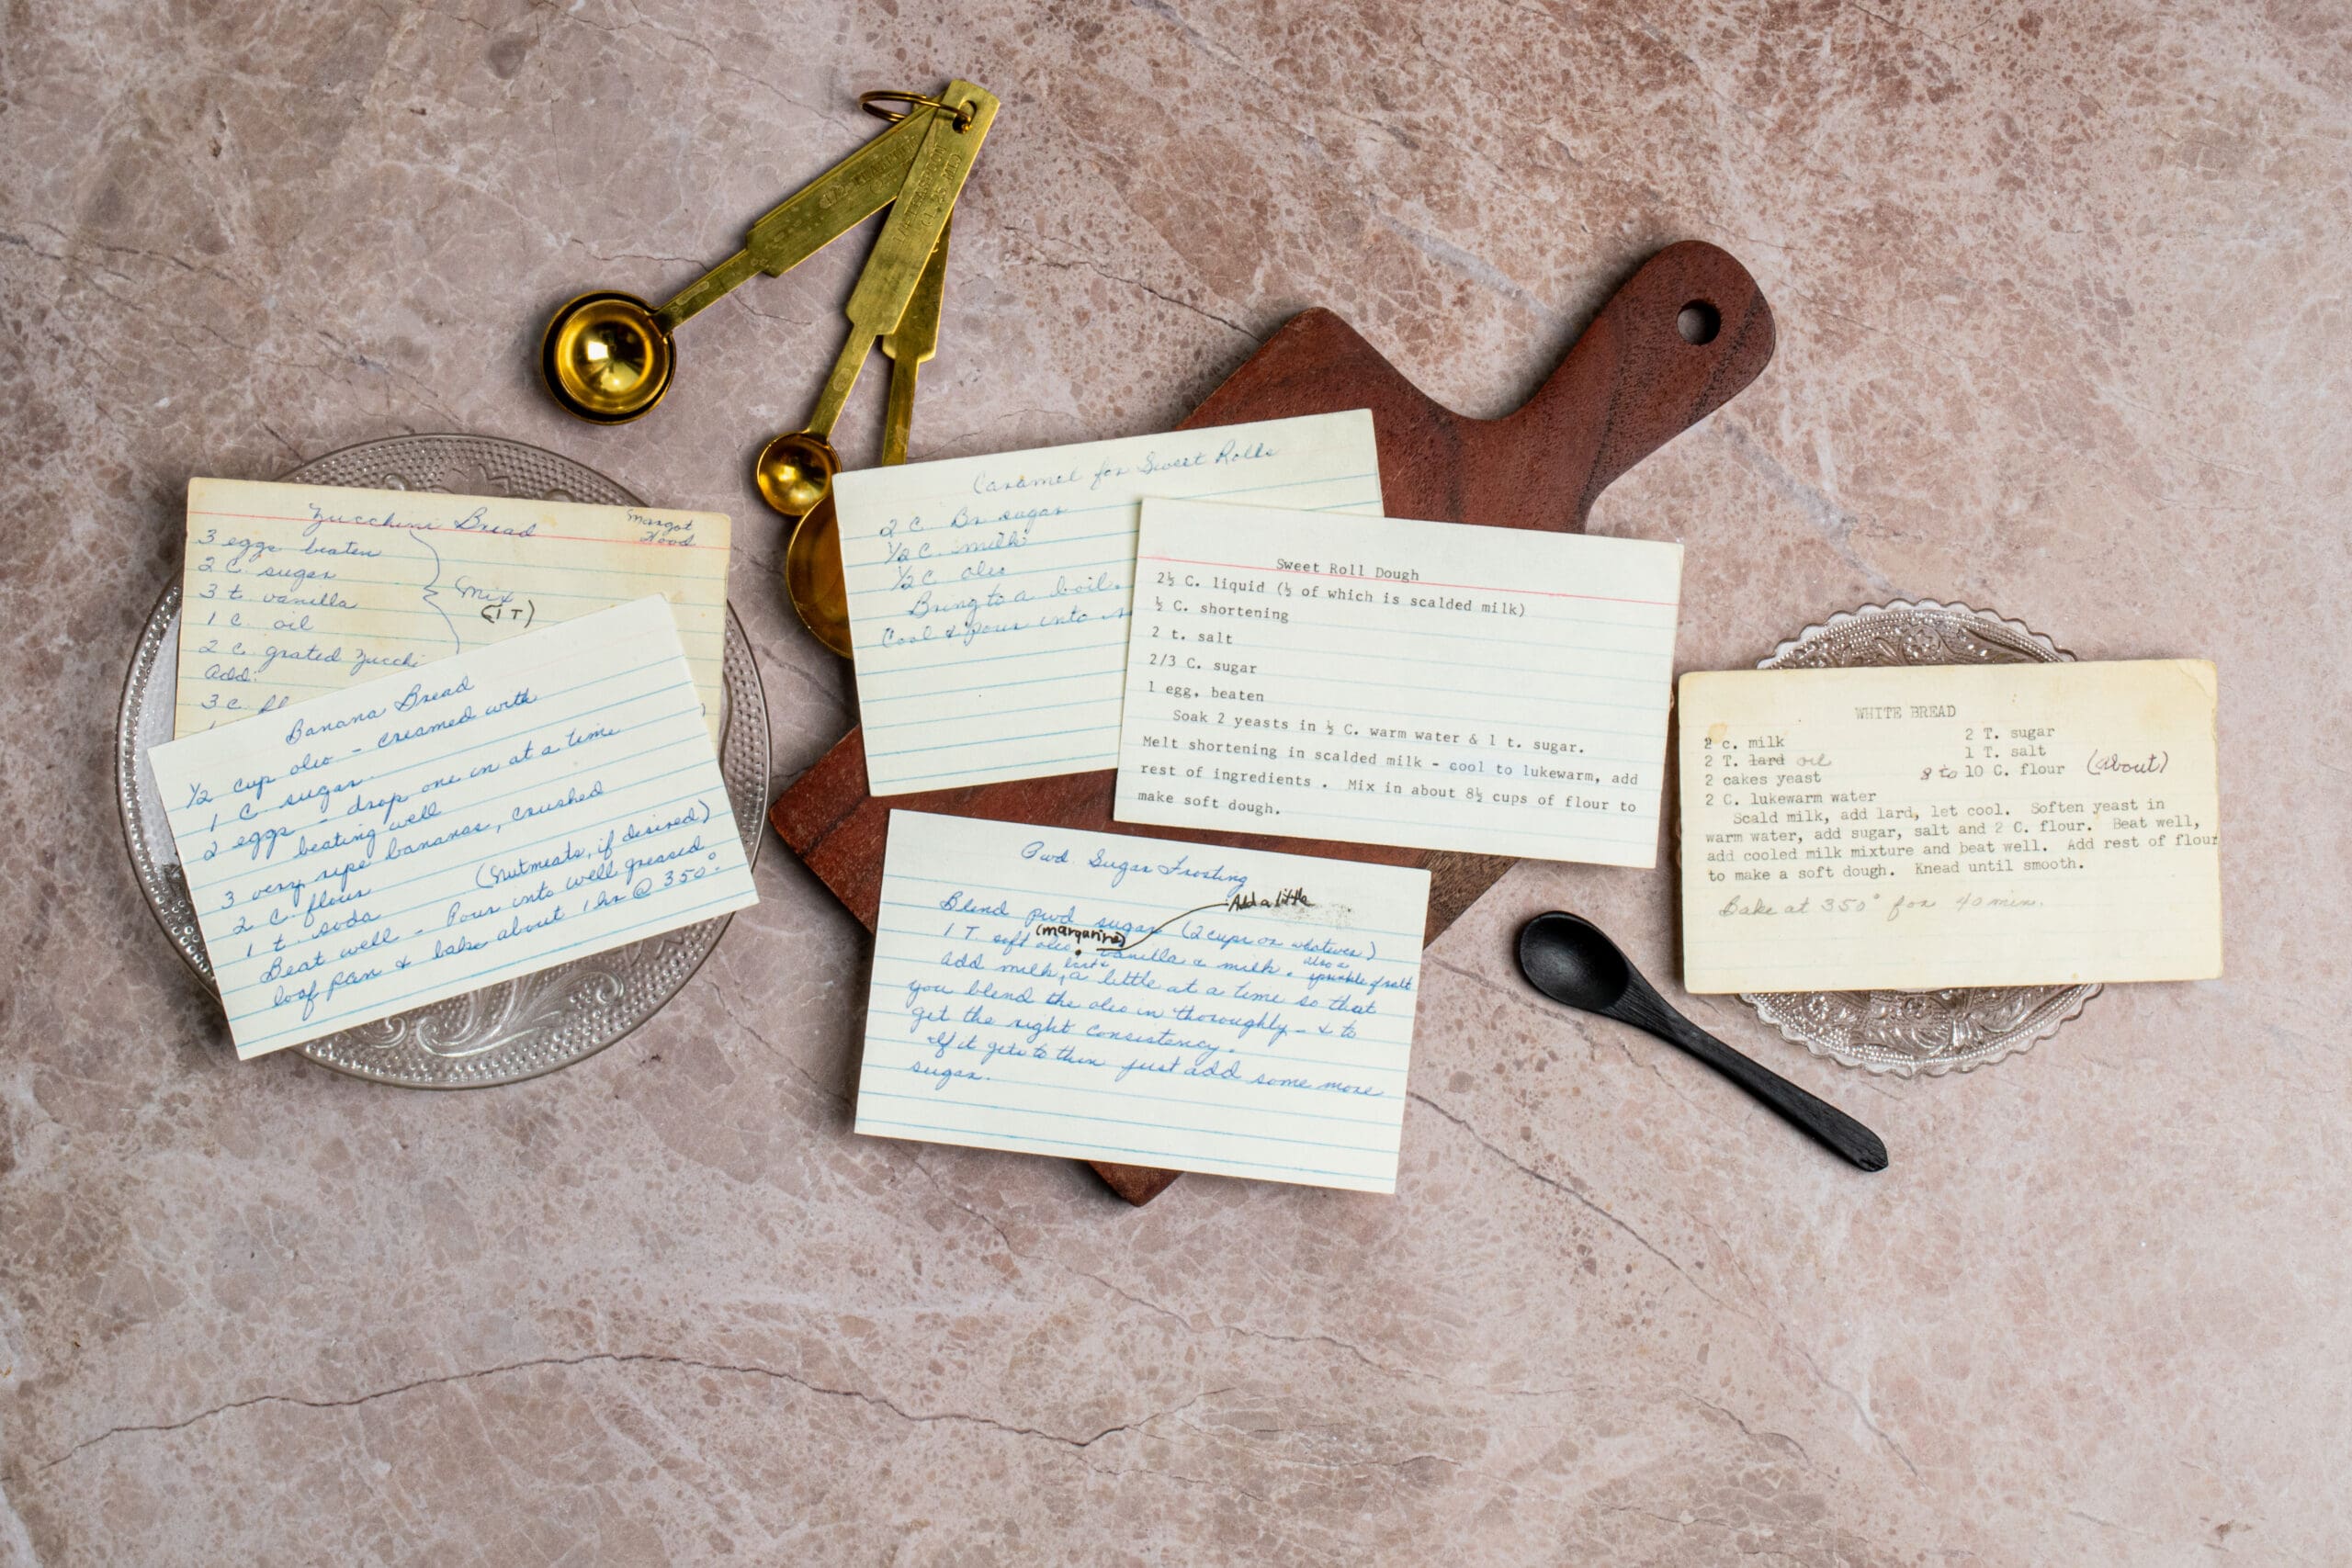 Zucchini Bread
Margot
Hood
3 eggs beaten
2 C. sugar
3 t. vanilla
Mix
(1 T)
1 C. oil
2 C. grated Zucchi
Add:
3 C. fl
Banana Bread
1/2 cup oleo - creamed with
1 C sugar.
2 eggs - drop one in at a time
beating well
3 very ripe bananas, crushed
2 C. flour
1 t. soda (nutmeats, if desired)
Beat well - Pour into well greased
loaf pan & bake about 1 hr @ 350°.
Caramel for Sweet Rolls
2 C. Br. sugar
1/2 C. milk
1/2 C oleo
Bring to a boil.
Cool & pour into
Sweet Roll Dough
2½ C. liquid (½ of which is scalded milk)
½ C. shortening
2 t. salt
2/3 C. sugar
1 egg, beaten
Soak 2 yeasts in ½ C. warm water & 1 t. sugar.
Melt shortening in scalded milk - cool to lukewarm, add
rest of ingredients . Mix in about 8½ cups of flour to
make soft dough.
Pwd. Sugar Frosting
Add a little
Blend pwd sugar (2 cups or whatever)
(margarine)
1 T. soft oleo, vanilla & milk. also a
sprinkle of salt
add milk, a little at a time so that
you blend the oleo in thoroughly - & to
get the right consistency.
If it gets to thin just add some more
sugar.
WHITE BREAD
2 c. milk 2 T. sugar
2 T. lard oil 1 T. salt
2 cakes yeast 8 to 10 C. flour (about)
2 C. lukewarm water
Scald milk, add lard, let cool. Soften yeast in
warm water, add sugar, salt and 2 C. flour. Beat well,
add cooled milk mixture and beat well. Add rest of flour
to make a soft dough. Knead until smooth.
Bake at 350° for 40 min.